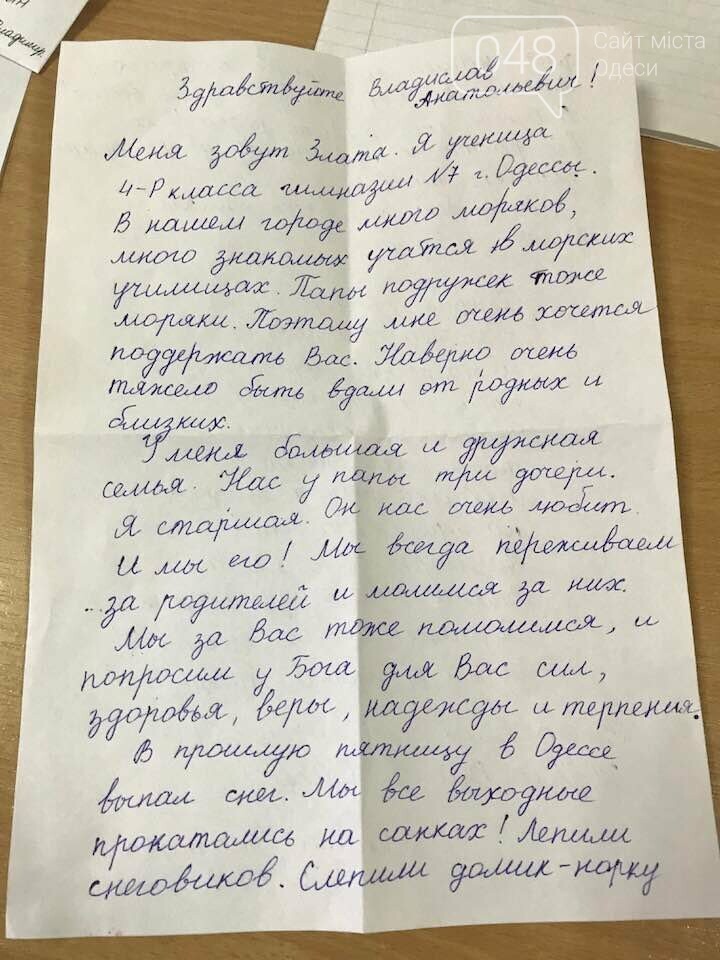 048
Сайт міста
Одеси
Владимир.
Здравствуйте Владислав
Анатольевич!
Меня зовут Злата. Я ученица
4-Р класса гимназии №7 г. Одессы.
В нашем городе много моряков,
много знакомых учатся в морских
училищах. Папы подружек тоже
моряки. Поэтому мне очень хочется
поддержать Вас. Наверно очень
тяжело быть вдали от родных и
близких.
У меня большая и дружная
семья. Нас у папы три дочери.
Я старшая. Он нас очень любит.
И мы его! Мы всегда переживаем
за родителей и молимся за них.
Мы за Вас тоже помолимся, и
попросим у Бога для Вас сил,
здоровья, веры, надежды и терпения.
В прошлую пятницу в Одессе
выпал снег. Мы все выходные
прокатались на санках! Лепили
снеговиков. Слепили домик-норку